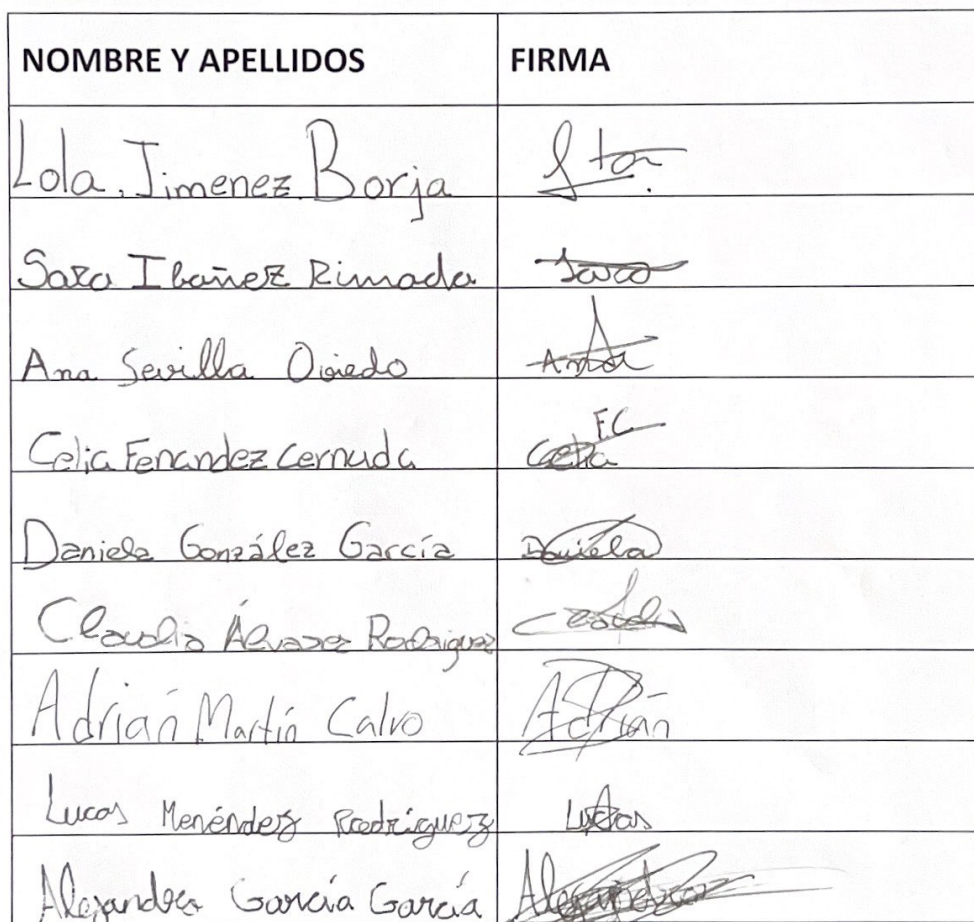 NOMBRE Y APELLIDOS FIRMA
Lola Jimenez Borja
Sara Ibañez Rimada Sara
Ana Sevilla Oviedo Ana
Celia Fenandez Cernuda Celia FC
Daniela González García Daniela
Claudia Álvarez Rodriguez
Adrián Martín Calvo Adrián
Lucas Menéndez Rodríguez Lucas
Alejandro García García Alejandro